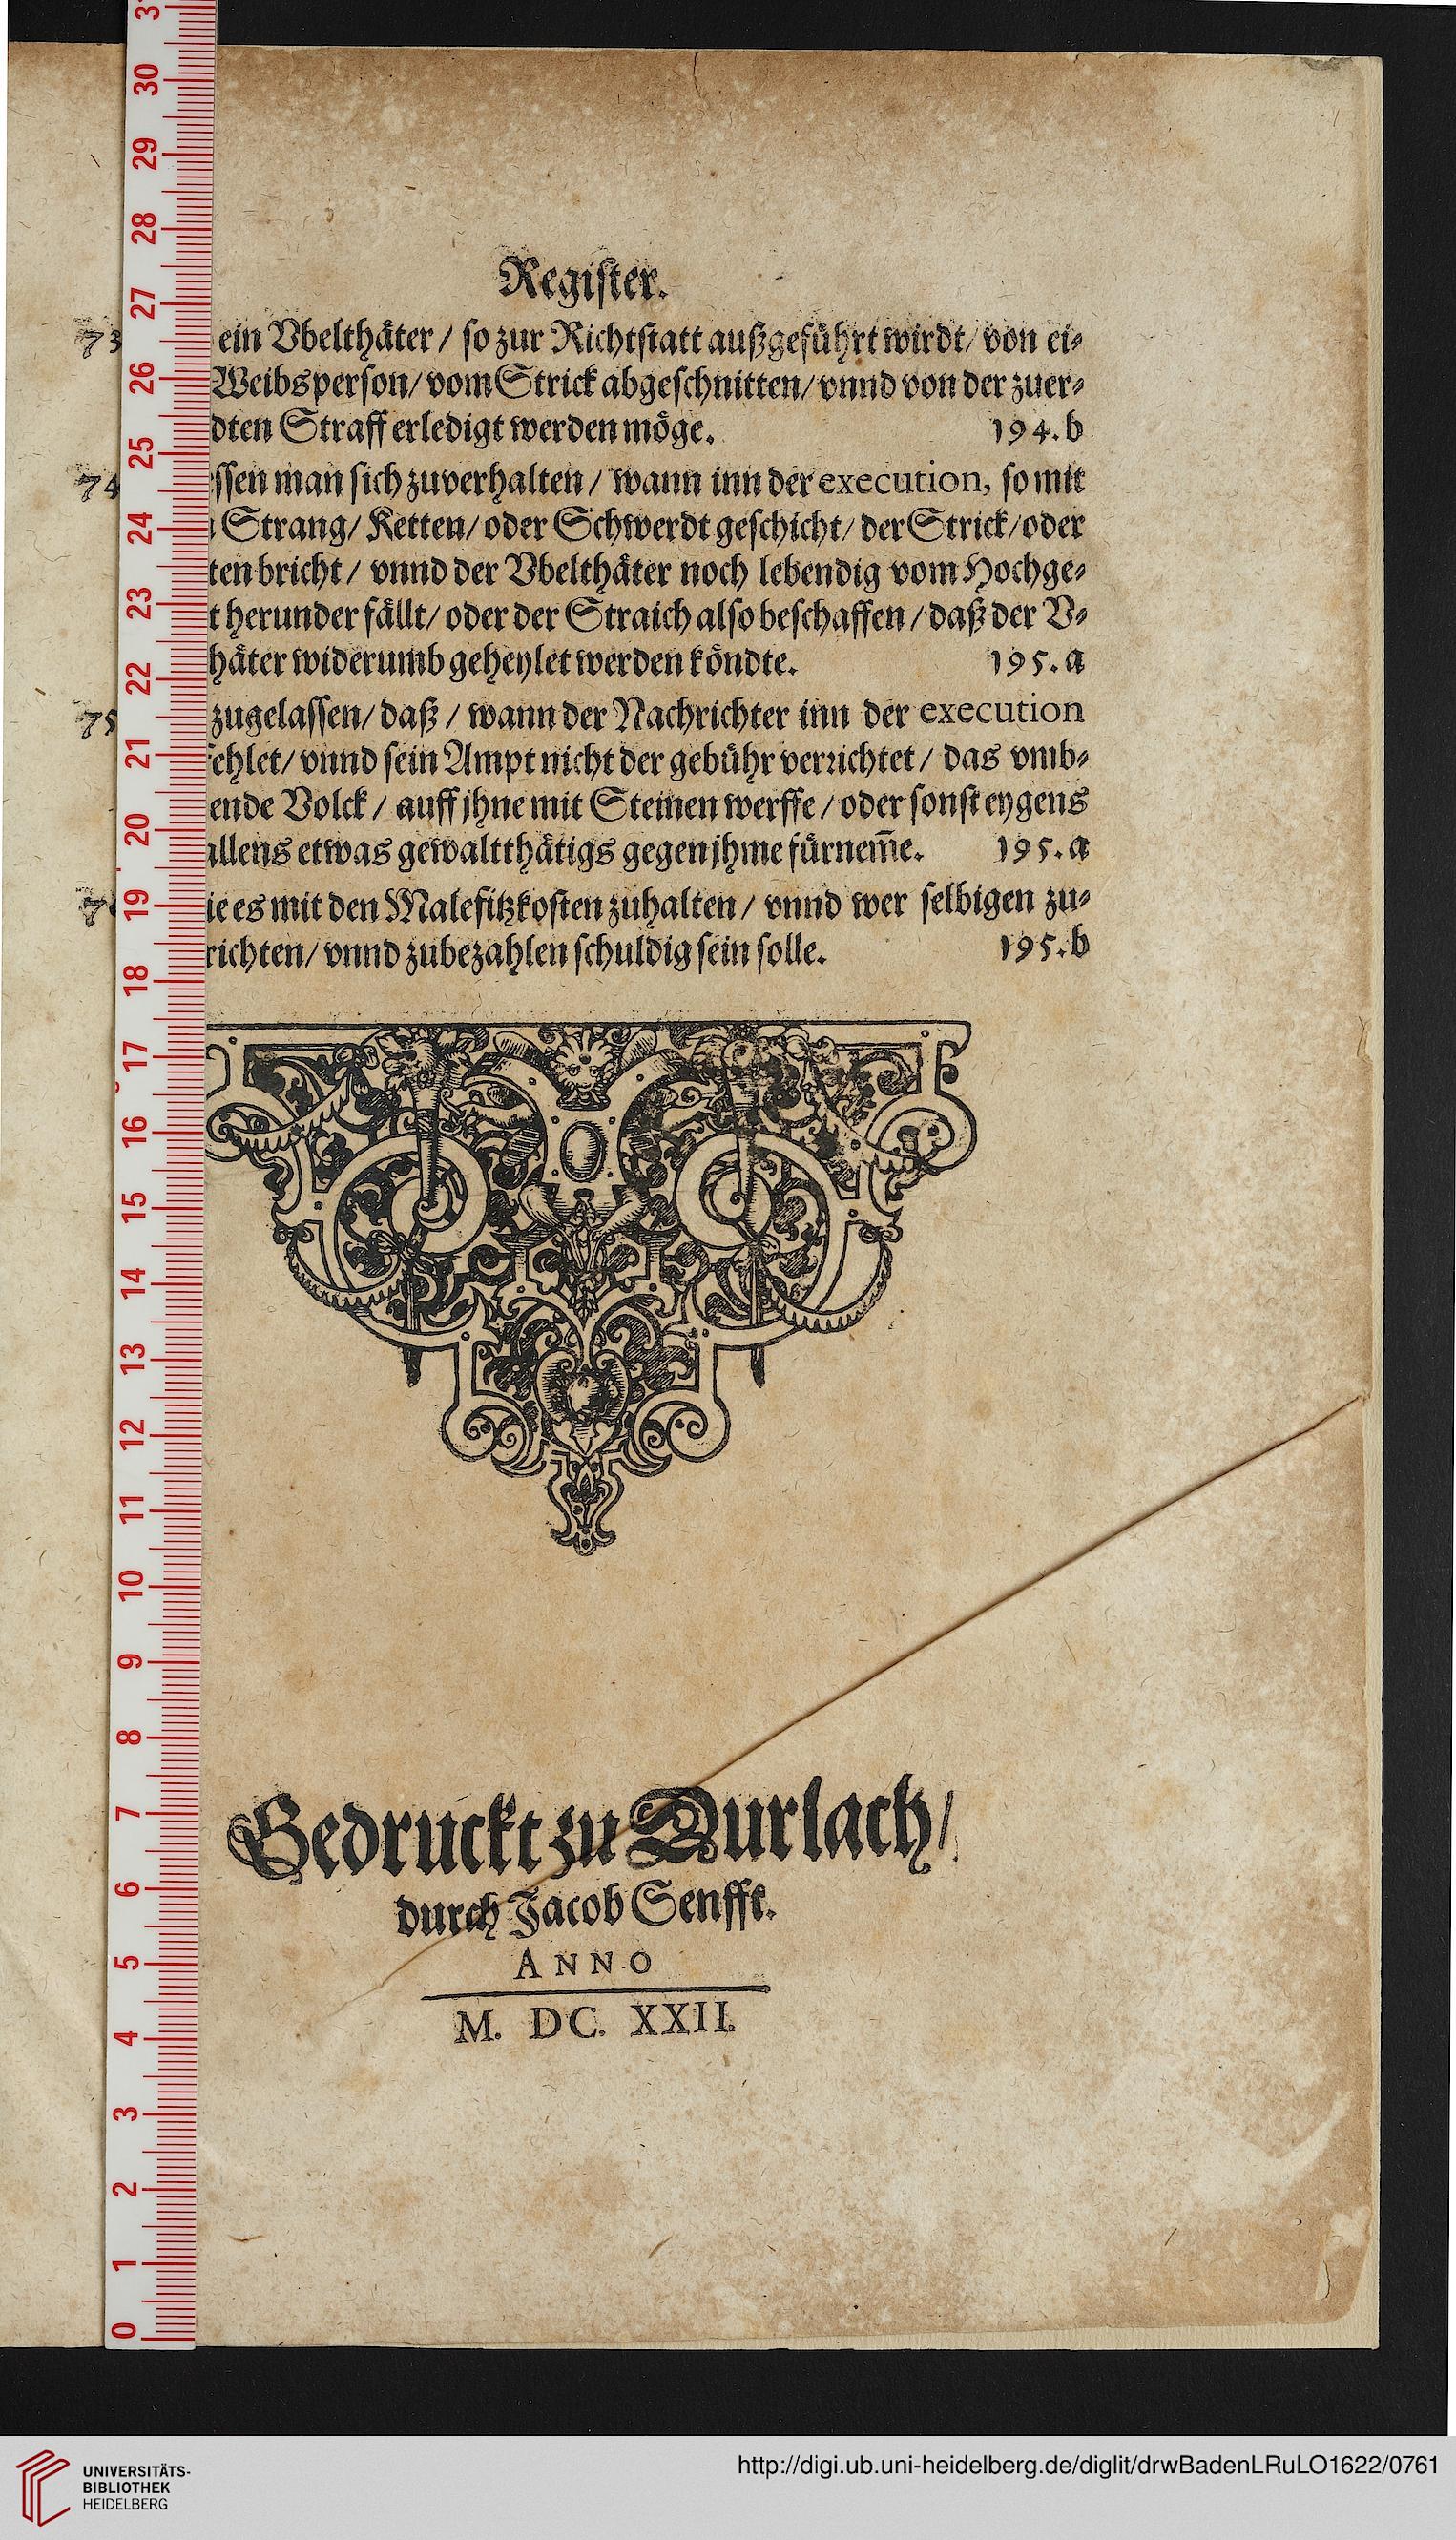 Register.
73 ein Vbelthäter / so zur Richtstatt außgeführt wirdt / von ei⸗
Weibsperson / vom Strick abgeschnitten / vnnd von der zuer⸗
dten Straff erledigt werden möge. 194.b
74 ssen man sich zuverhalten / wann inn der execution, so mit
Strang / Ketten / oder Schwerdt geschicht / der Strick / oder
ten bricht / vnnd der Vbelthäter noch lebendig vom Hochge⸗
t herunder fällt / oder der Straich also beschaffen / daß der V⸗
häter widerumb geheylet werden köndte. 195.a
75 zugelassen / daß / wann der Nachrichter inn der execution
ehlet / vnnd sein Ampt nicht der gebühr verrichtet / das vmb⸗
ende Volck / auff jhne mit Steinen werffe / oder sonst eygens
allens etwas gewaltthätigs gegen jhme fürnem̃e. 195.a
ie es mit den Malefitzkosten zuhalten / vnnd wer selbigen zu⸗
richten / vnnd zubezahlen schuldig sein solle. 195.b
Gedruckt zu Durlach /
durch Jacob Senfft.
ANNO
M. DC. XXII.
31
30
29
28
27
26
25
24
23
22
21
20
19
18
17
16
15
14
13
12
11
10
9
8
7
6
5
4
3
2
1
0
UNIVERSITÄTS-
BIBLIOTHEK
HEIDELBERG
http://digi.ub.uni-heidelberg.de/diglit/drwBadenLRuLO1622/0761